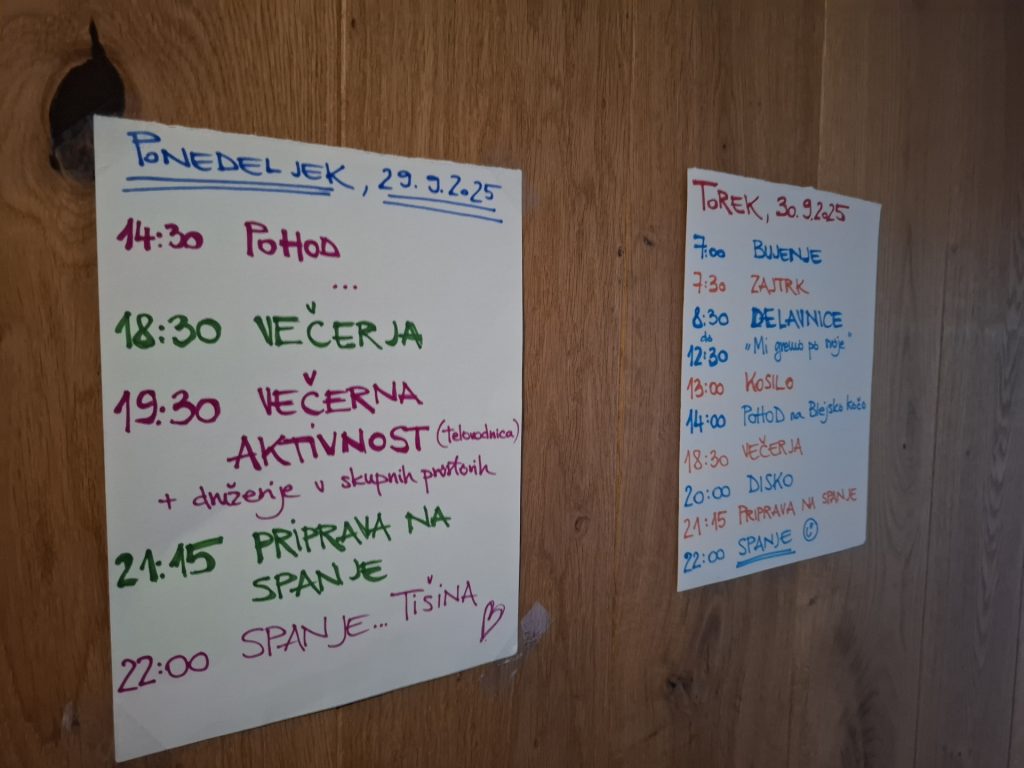 PONEDELJEK, 29.9.2025
14:30 POHOD
...
18:30 VEČERJA
19:30 VEČERNA
AKTIVNOST (telovadnica)
+ druženje v skupnih prostorih
21:15 PRIPRAVA NA
SPANJE
22:00 SPANJE... TIŠINA
TOREK, 30.9.2025
7:00 BUJENJE
7:30 ZAJTRK
8:30 DELAVNICE
do "Mi gremo po svoje"
12:30
13:00 KOSILO
14:00 POHOD na Blejsko kočo
18:30 VEČERJA
20:00 DISKO
21:15 PRIPRAVA NA SPANJE
22:00 SPANJE